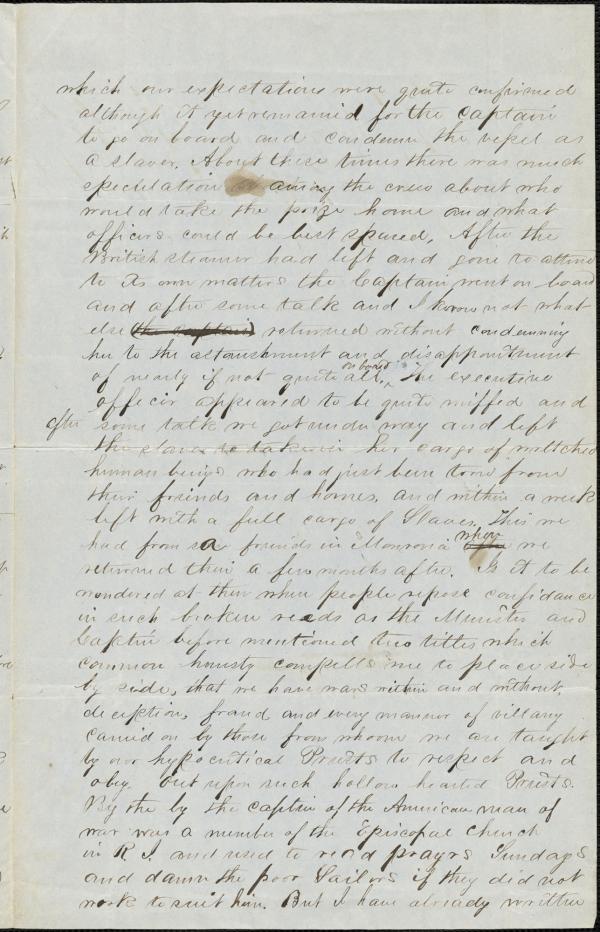 which our expectations were quite confirmed
although it yet remained for the Captain
to go on board and condemn the vessel as
a slaver. About these times there was much
speculation among the crew about who
would take the prize home and what
officers could be best spared. After the
British steamer had left and gone to attend
to its own matters the Captain went on board
and after some talk and I know not what
else the captain returned without condemning
her to the astonishment and disappointment
of nearly if not quite all on board. The executive
officer appeared to be quite miffed and
after some talk we got under way and left
the slaver to take in her cargo of wretched
human beings who had just been torn from
their friends and homes, and within a week
left with a full cargo of Slaves. This we
had from a friends in Monrovia when we
returned their a few months after. Is it to be
wondered at then when people repose confidance
in such broken reeds as the Minister and
Captin before mentioned two titles which
common honesty compells me to place side
by side, that we have wars within and without,
deception, fraud and every manner of villany
carried on by those from whoom we are taught
by our hypocritical Priests to respect and
obey. Out upon such hollow hearted Priests.
By the by the captin of the American man of
war was a member of the Episcopal Church
in R. I. and used to read prayrs Sundays
and damn the poor Sailors if they did not
work to suit him. But I have already written